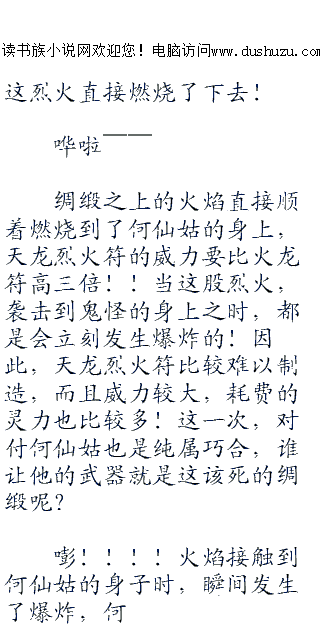 读书族小说网欢迎您！电脑访问www.dushuzu.com
这烈火直接燃烧了下去！
哗啦——
绸缎之上的火焰直接顺
着燃烧到了何仙姑的身上，
天龙烈火符的威力要比火龙
符高三倍！！当这股烈火，
袭击到鬼怪的身上之时，都
是会立刻发生爆炸的！因
此，天龙烈火符比较难以制
造，而且威力较大，耗费的
灵力也比较多！这一次，对
付何仙姑也是纯属巧合，谁
让他的武器就是这该死的绸
缎呢？
嘭！！！！火焰接触到
何仙姑的身子时，瞬间发生
了爆炸，何